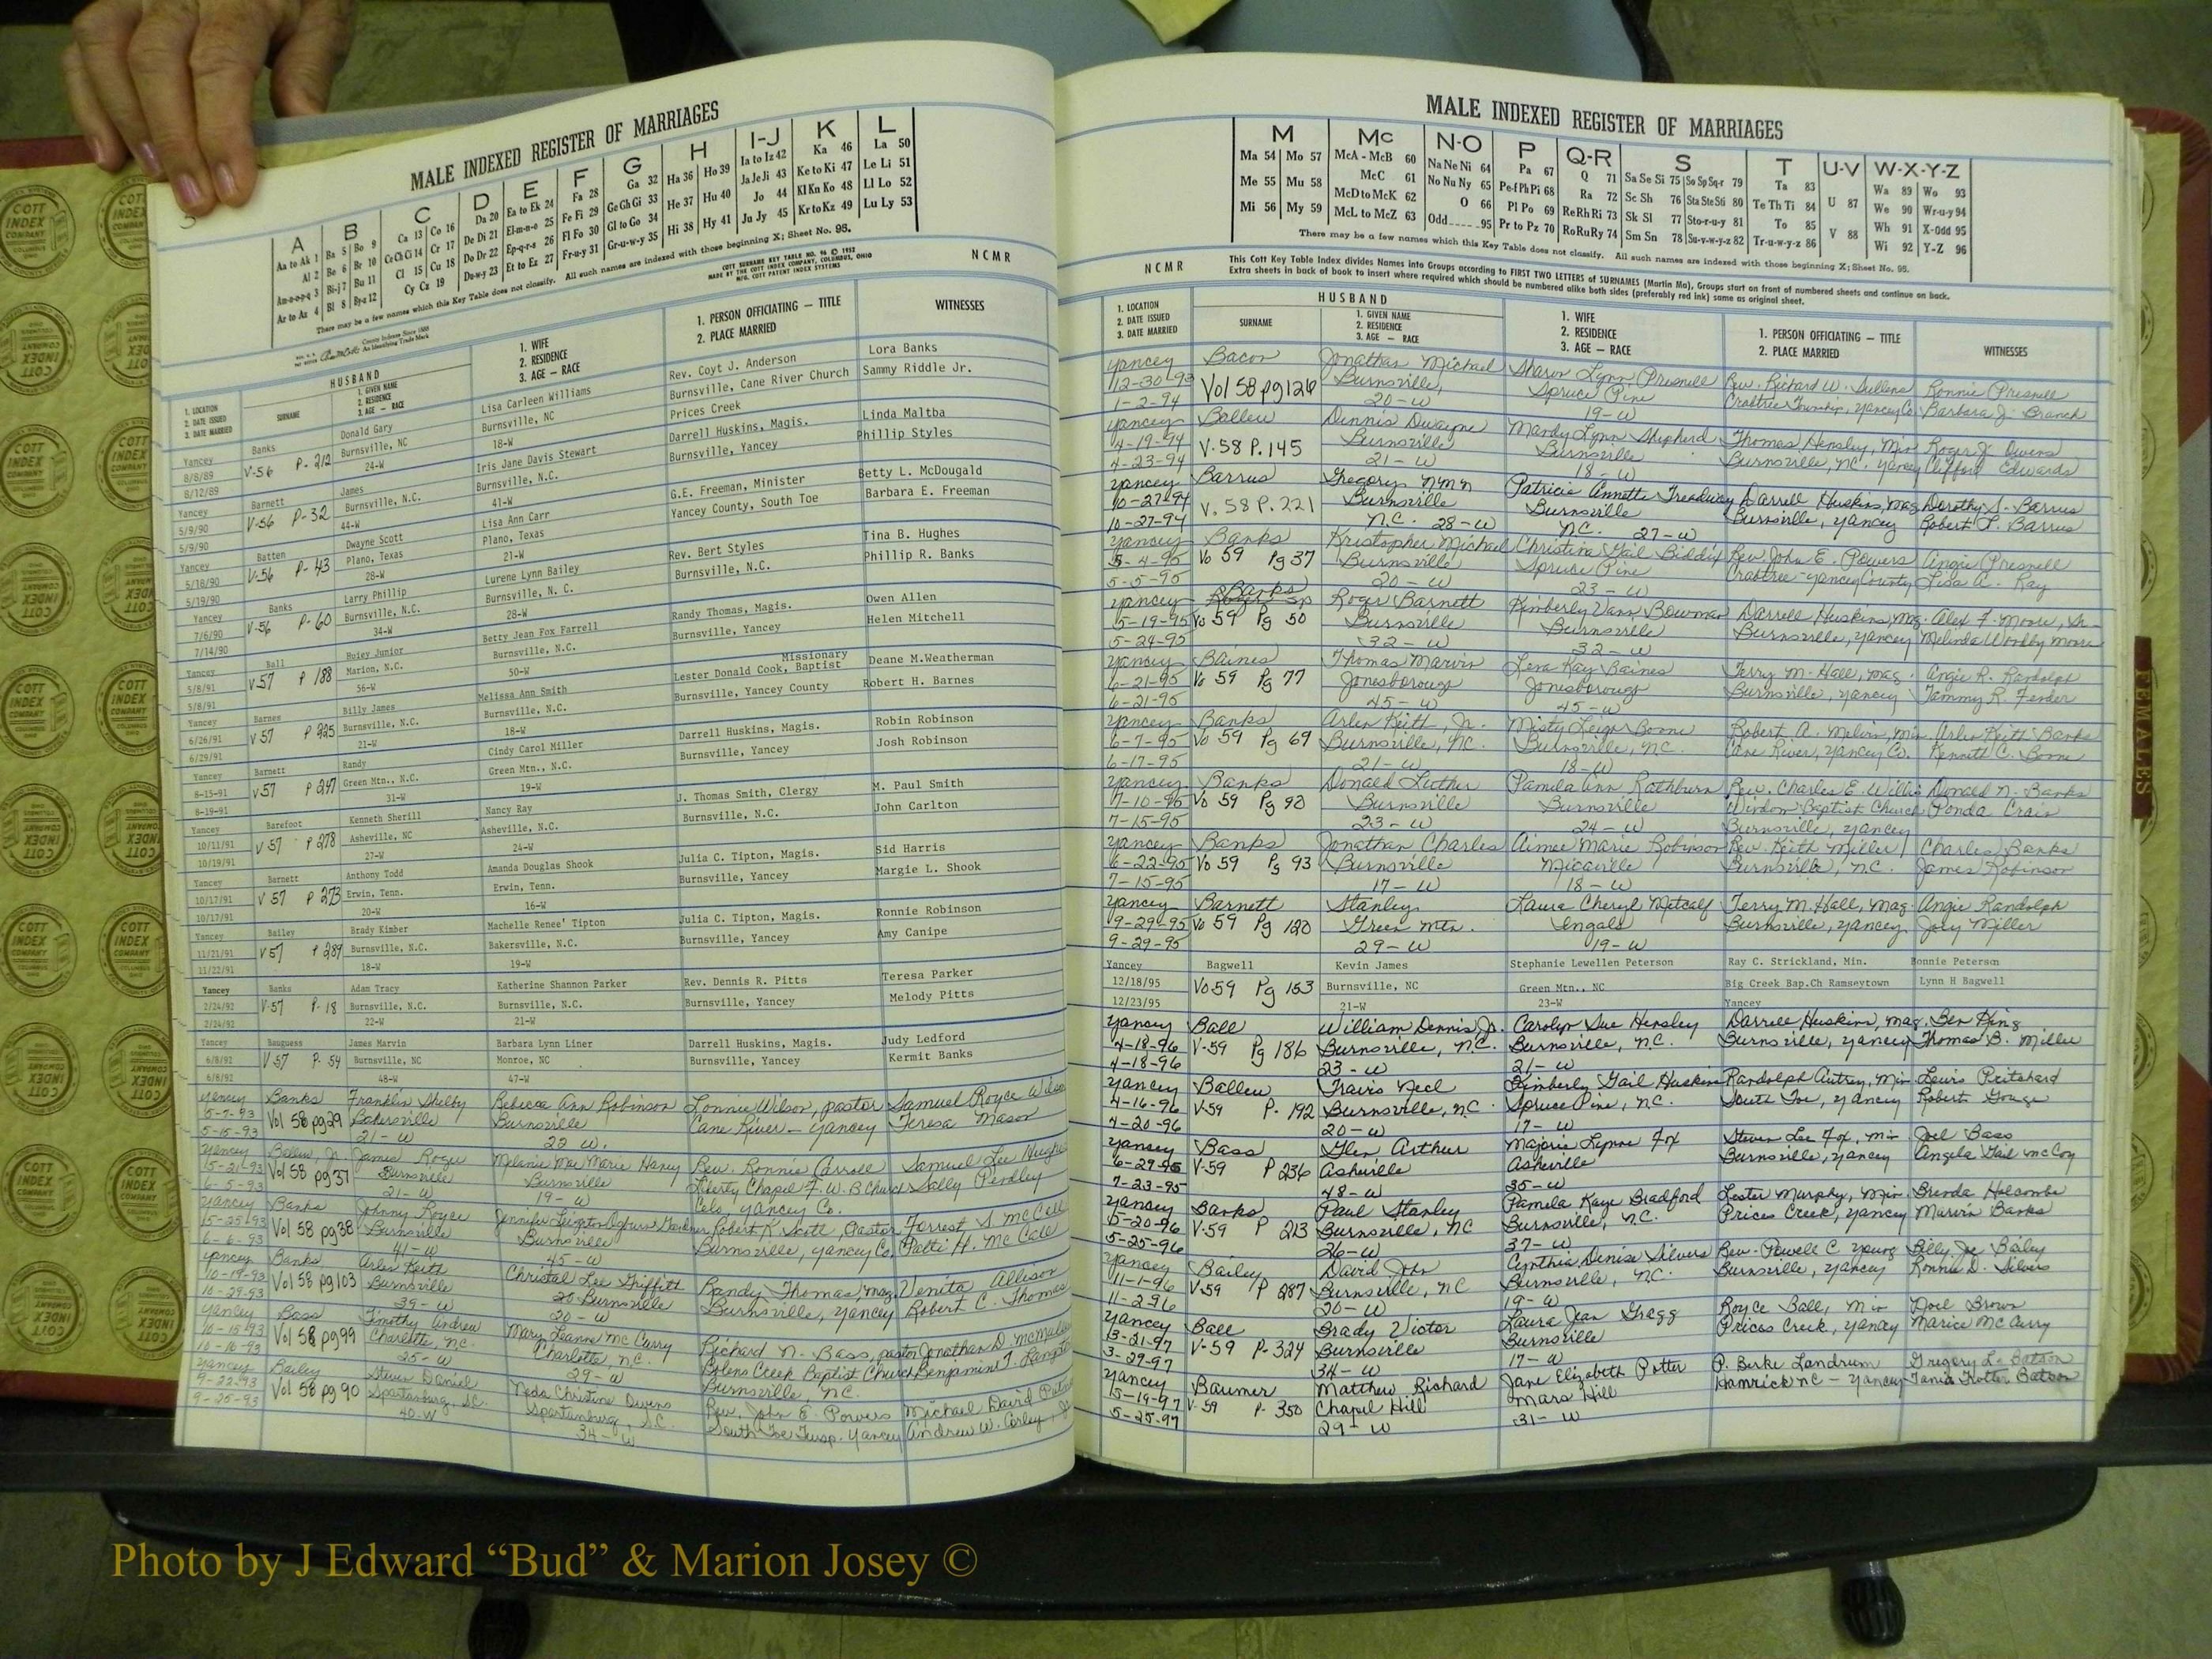 MALE INDEXED REGISTER OF MARRIAGES
A B C D E F G H I-J K L
Aa to Ak 1 Ba 5 Bo 9 Ca 13 Co 16 Da 20 Ea to Ek 24 Fa 28 Ga 32 Ha 36 Ho 39 Ia to Iz 42 Ka 46 La 50
Al 2 Be 6 Br 10 Ce Ch Ci 14 Cr 17 De Di 21 El-m-n-o 25 Fe Fi 29 Ge Gh Gi 33 He 37 Hu 40 Ja Je Ji 43 Ke to Ki 47 Le Li 51
Am-n-o-p-q 3 Bi-j 7 Bu 11 Cl 15 Cu 18 Do Dr 22 Ep-q-r-s 26 Fl Fo 30 Gl to Go 34 Hi 38 Hy 41 Jo 44 Kl Kn Ko 48 Ll Lo 52
Ar to Az 4 Bl 8 By-z 12 Cy Cz 19 Du-w-y 23 Et to Ez 27 Fr-u-y 31 Gr-u-w-y 35 Ju Jy 45 Kr to Kz 49 Lu Ly 53
There may be a few names which this Key Table does not classify. All such names are indexed with those beginning X; Sheet No. 95.
COTT SURNAME KEY TABLE NO. 96 © 1952
MADE BY THE COTT INDEX COMPANY, COLUMBUS, OHIO
MFG. COTT PATENT INDEX SYSTEMS
NCMR
County Indexes Since 1888
An Identifying Trade Mark
HUSBAND
1. LOCATION
2. DATE ISSUED
3. DATE MARRIED
SURNAME
1. GIVEN NAME
2. RESIDENCE
3. AGE — RACE
1. WIFE
2. RESIDENCE
3. AGE — RACE
1. PERSON OFFICIATING — TITLE
2. PLACE MARRIED
WITNESSES
Yancey Banks Donald Gary Lisa Carleen Williams Rev. Coyt J. Anderson Lora Banks
8/8/89 V-56 P-212 Burnsville, NC Burnsville, NC Burnsville, Cane River Church Sammy Riddle Jr.
8/12/89 24-W 18-W Prices Creek
Yancey Barnett James Iris Jane Davis Stewart Darrell Huskins, Magis. Linda Maltba
5/9/90 V-56 P-32 Burnsville, N.C. Burnsville, N.C. Burnsville, Yancey Phillip Styles
5/9/90 44-W 41-W
Yancey Batten Dwayne Scott Lisa Ann Carr G.E. Freeman, Minister Betty L. McDougald
5/18/90 V-56 P-43 Plano, Texas Plano, Texas Yancey County, South Toe Barbara E. Freeman
5/19/90 28-W 21-W
Yancey Banks Larry Phillip Lurene Lynn Bailey Rev. Bert Styles Tina B. Hughes
7/6/90 V-56 P-60 Burnsville, N.C. Burnsville, N. C. Burnsville, N.C. Phillip R. Banks
7/14/90 34-W 28-W
Yancey Ball Huiey Junior Betty Jean Fox Farrell Randy Thomas, Magis. Owen Allen
5/8/91 V57 P 188 Marion, N.C. Burnsville, N.C. Burnsville, Yancey Helen Mitchell
5/8/91 56-W 50-W
Yancey Barnes Billy James Melissa Ann Smith Lester Donald Cook, Missionary Baptist Deane M.Weatherman
6/26/91 V57 P 225 Burnsville, N.C. Burnsville, N.C. Burnsville, Yancey County Robert H. Barnes
6/29/91 21-W 18-W
Yancey Barnett Randy Cindy Carol Miller Darrell Huskins, Magis. Robin Robinson
8-15-91 V57 P 247 Green Mtn., N.C. Green Mtn., N.C. Burnsville, Yancey Josh Robinson
8-19-91 31-W 19-W
Yancey Barefoot Kenneth Sherill Nancy Ray J. Thomas Smith, Clergy M. Paul Smith
10/11/91 V57 P 278 Asheville, NC Asheville, N.C. Burnsville, N.C. John Carlton
10/19/91 27-W 24-W
Yancey Barnett Anthony Todd Amanda Douglas Shook Julia C. Tipton, Magis. Sid Harris
10/17/91 V57 P 273 Erwin, Tenn. Erwin, Tenn. Burnsville, Yancey Margie L. Shook
10/17/91 20-W 16-W
Yancey Bailey Brady Kimber Machelle Renee' Tipton Julia C. Tipton, Magis. Ronnie Robinson
11/21/91 V57 P 289 Burnsville, N.C. Bakersville, N.C. Burnsville, Yancey Amy Canipe
11/22/91 18-W 19-W
Yancey Banks Adam Tracy Katherine Shannon Parker Rev. Dennis R. Pitts Teresa Parker
2/24/92 V-57 P-18 Burnsville, N.C. Burnsville, N.C. Burnsville, Yancey Melody Pitts
2/24/92 22-W 21-W
Yancey Bauguess James Marvin Barbara Lynn Liner Darrell Huskins, Magis. Judy Ledford
6/8/92 V57 P. 54 Burnsville, NC Monroe, NC Burnsville, Yancey Kermit Banks
6/8/92 48-W 47-W
Yancey Banks Franklin Shelby Rebecca Ann Robinson Lonnie Wilson, pastor Samuel Royce
5-7-93 Vol 58 pg 29 Bakersville Burnsville Cane River – Yancey Teresa Mason
5-15-93 21-W 22 W.
Yancey Ballew, Jr. James Roger Melanie Mae Marie Haney Rev. Ronnie Carroll Samuel Lee Hughes
5-21-93 Vol 58 pg 37 Burnsville Burnsville Liberty Chapel F.W.B Church Sally Pendley
6-5-93 21-W 19-W Celo, Yancey Co.
Yancey Banks Johnny Royce Jennifer Robert K. Scott, Pastor Forrest S. McCall
5-25-93 Vol 58 pg 38 Burnsville Burnsville Burnsville, Yancey Co. Patti H. McCall
6-6-93 41-W 45-W
Yancey Banks Arlen Keith Christal Lee Griffith Randy Thomas, mag. Venita Allison
10-19-93 Vol 58 pg 103 Burnsville Burnsville Burnsville, Yancey Robert C. Thomas
10-29-93 39-W 20-W
Yancey Bass Timothy Andrew Mary Leanne McCurry Richard N. Bass, pastor Jonathan D.
10-15-93 Vol 58 pg 99 Charlotte, N.C. Charlotte, N.C. Bolens Creek Baptist Church Benjamin T.
10-16-93 25-W 29-W Burnsville, N.C.
Yancey Bailey Steven Daniel Neda Christine Owens Rev. John E. Powers Michael David
9-22-93 Vol 58 pg 90 Spartanburg, SC. Spartanburg, S.C. South Toe Twsp. Yancey Andrew W. Corley
9-25-93 40-W 34-W
MALE INDEXED REGISTER OF MARRIAGES
M Mc N-O P Q-R S T U-V W-X-Y-Z
Ma 54 Mo 57 McA - McB 60 Na Ne Ni 64 Pa 67 Q 71 Sa Se Si 75 So Sp Sq-r 79 Ta 83 Wa 89 Wo 93
Me 55 Mu 58 McC 61 No Nu Ny 65 Pe-f Ph Pi 68 Ra 72 Sc Sh 76 Sta Ste Sti 80 Te Th Ti 84 U 87 We 90 Wr-u-y 94
Mi 56 My 59 McD to McK 62 O 66 Pl Po 69 Re Rh Ri 73 Sk Sl 77 Sto-r-u-y 81 To 85 Wh 91 X-Odd 95
McL to McZ 63 Odd 95 Pr to Pz 70 Ro Ru Ry 74 Sm Sn 78 Su-v-w-y-z 82 Tr-u-w-y-z 86 V 88 Wi 92 Y-Z 96
There may be a few names which this Key Table does not classify. All such names are indexed with those beginning X; Sheet No. 95.
NCMR
This Cott Key Table Index divides Names into Groups according to FIRST TWO LETTERS of SURNAMES (Martin Ma), Groups start on front of numbered sheets and continue on back.
Extra sheets in back of book to insert where required which should be numbered alike both sides (preferably red ink) same as original sheet.
1. LOCATION
2. DATE ISSUED
3. DATE MARRIED
HUSBAND
SURNAME
1. GIVEN NAME
2. RESIDENCE
3. AGE — RACE
1. WIFE
2. RESIDENCE
3. AGE — RACE
1. PERSON OFFICIATING — TITLE
2. PLACE MARRIED
WITNESSES
Yancey Bacon Jonathan Michael Sharon Lynn Presnell Rev. Richard W. Sullens Ronnie Presnell
12-30-93 Vol 58 pg 126 Burnsville, Spruce Pine Crabtree Township, Yancey Co. Barbara J. Branch
1-2-94 20-W 19-W
Yancey Ballew Dennis Dwayne Mandy Lynn Shepherd Thomas Hensley, Min Roger J. Owens
4-19-94 V.58 P.145 Burnsville Burnsville Burnsville, N.C. Yancey Clifford Edwards
4-23-94 21-W 18-W
Yancey Barrus Gregory NMN Patricia Annette Treadway Darrell Huskins, Mag. Dorothy S. Barrus
10-27-94 V.58 P.221 Burnsville Burnsville Burnsville, Yancey Robert L. Barrus
10-27-94 N.C. 28-W N.C. 27-W
Yancey Banks Kristopher Michael Christina Gail Biddix Rev. John E. Powers Angie Presnell
5-4-95 Vo 59 Pg 37 Burnsville Spruce Pine Crabtree-Yancey County Lisa A. Ray
5-5-95 20-W 23-W
Yancey Banks Roger Barnett Kimberly Vann Bowman Darrell Huskins, Mag. Alex F. Moore, Sr.
5-19-95 Vo 59 Pg 50 Burnsville Burnsville Burnsville, Yancey Melinda Woodby Moore
5-24-95 32-W 32-W
Yancey Baines Thomas Marvin Lena Kay Baines Terry M. Hall, Mag. Angie R. Randolph
6-21-95 Vo 59 Pg 77 Jonesborough Jonesborough Burnsville, Yancey Tammy R. Fender
6-21-95 45-W 45-W
Yancey Banks Arlen Keith, Jr. Misty Leigh Boone Robert A. Melvin, Min. Arlen Keith Banks
6-7-95 Vo 59 Pg 69 Burnsville, NC. Burnsville, N.C. Cane River, Yancey Co. Kenneth C. Boone
6-17-95 21-W 18-W
Yancey Banks Donald Luther Pamela Ann Rathburn Rev. Charles E. Willis Donald N. Banks
7-10-95 Vo 59 Pg 92 Burnsville Burnsville Windom Baptist Church Ponda Crain
7-15-95 23-W 24-W Burnsville, Yancey
Yancey Banks Jonathan Charles Aimee Marie Robinson Rev. Keith Miller Charles Banks
6-22-95 Vo 59 Pg 93 Burnsville Micaville Burnsville, N.C. James Robinson
7-15-95 17-W 18-W
Yancey Barnett Stanley Laura Cheryl Metcalf Terry M. Hall, Mag. Angie Randolph
9-29-95 Vo 59 Pg 120 Green Mtn. Ingals Burnsville, Yancey Joey Miller
9-29-95 29-W 19-W
Yancey Bagwell Kevin James Stephanie Lewellen Peterson Ray C. Strickland, Min. Bonnie Peterson
12/18/95 Vo 59 Pg 153 Burnsville, NC Green Mtn., NC Big Creek Bap.Ch Ramseytown Lynn H Bagwell
12/23/95 21-W 23-W Yancey
Yancey Ball William Dennis, Jr. Carolyn Sue Hensley Darrell Huskins, Mag. Ben King
4-18-96 V-59 Pg 186 Burnsville, N.C. Burnsville, N.C. Burnsville, Yancey Thomas B. Miller
4-18-96 23-W 21-W
Yancey Ballew Travis Neal Kimberly Gail Huskins Randolph Autrey, Min. Lewis Pritchard
4-16-96 V-59 P-192 Burnsville, NC. Spruce Pine, N.C. South Toe, Yancey Robert Gouge
4-20-96 20-W 17-W
Yancey Bass Glen Arthur Majorie Lynne Fox Steven Lee Fox, Min Joel Bass
6-27-95 V-59 P 236 Asheville Asheville Burnsville, Yancey Angela Gail McCoy
7-23-95 48-W 35-W
Yancey Banks Paul Stanley Pamela Kaye Bradford Lester Murphy, Min. Brenda Holcombe
5-20-96 V-59 P 213 Burnsville, NC Burnsville, N.C. Prices Creek, Yancey Marvin Banks
5-25-96 26-W 37-W
Yancey Bailey David John Cynthia Denise Silvers Rev. Powell C Young Billy Joe Bailey
11-1-96 V-59 P 287 Burnsville, NC Burnsville, N.C. Burnsville, Yancey Ronnie D. Silvers
11-2-96 20-W 19-W
Yancey Ball Grady Victor Laura Jean Gragg Royce Ball, Min Noel Brown
3-21-97 V-59 P-324 Burnsville Burnsville Prices Creek, Yancey Marice McCurry
3-29-97 34-W 17-W
Yancey Baumer Matthew Richard Jane Elizabeth Potter P. Berke Landrum Gregory L. Batson
5-19-97 V-59 P-350 Chapel Hill Mars Hill Hamrick NC – Yancey Tania Trotter Batson
5-25-97 29-W 31-W
FEMALES
COTT INDEX COMPANY COLUMBUS OHIO
Photo by J Edward “Bud” & Marion Josey ©